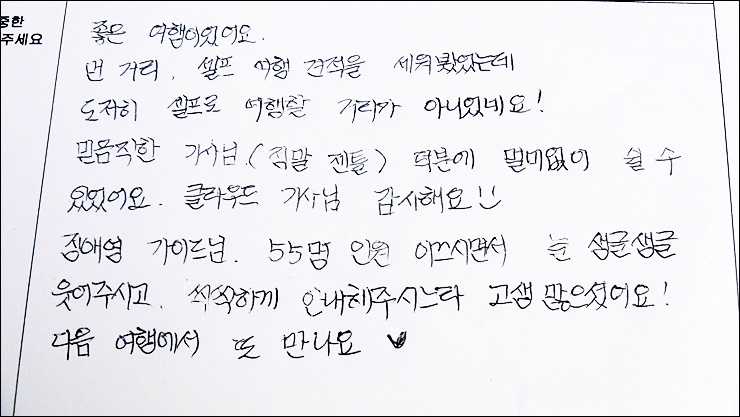 중한
주세요
좋은 여행이었어요.
먼 거리, 셀프 여행 견적을 세워봤었는데
도저히 셀프로 여행할 거리가 아니었네요!
믿음직한 기사님 (정말 젠틀) 덕분에 멀미없이 쉴 수
있었어요. 클라우드 기사님 감사해요
정애영 가이드님. 55명 인원 이끄시면서 늘 생글생글
웃어주시고, 씩씩하게 안내해주시느라 고생 많으셨어요!
다음 여행에서 또 만나요